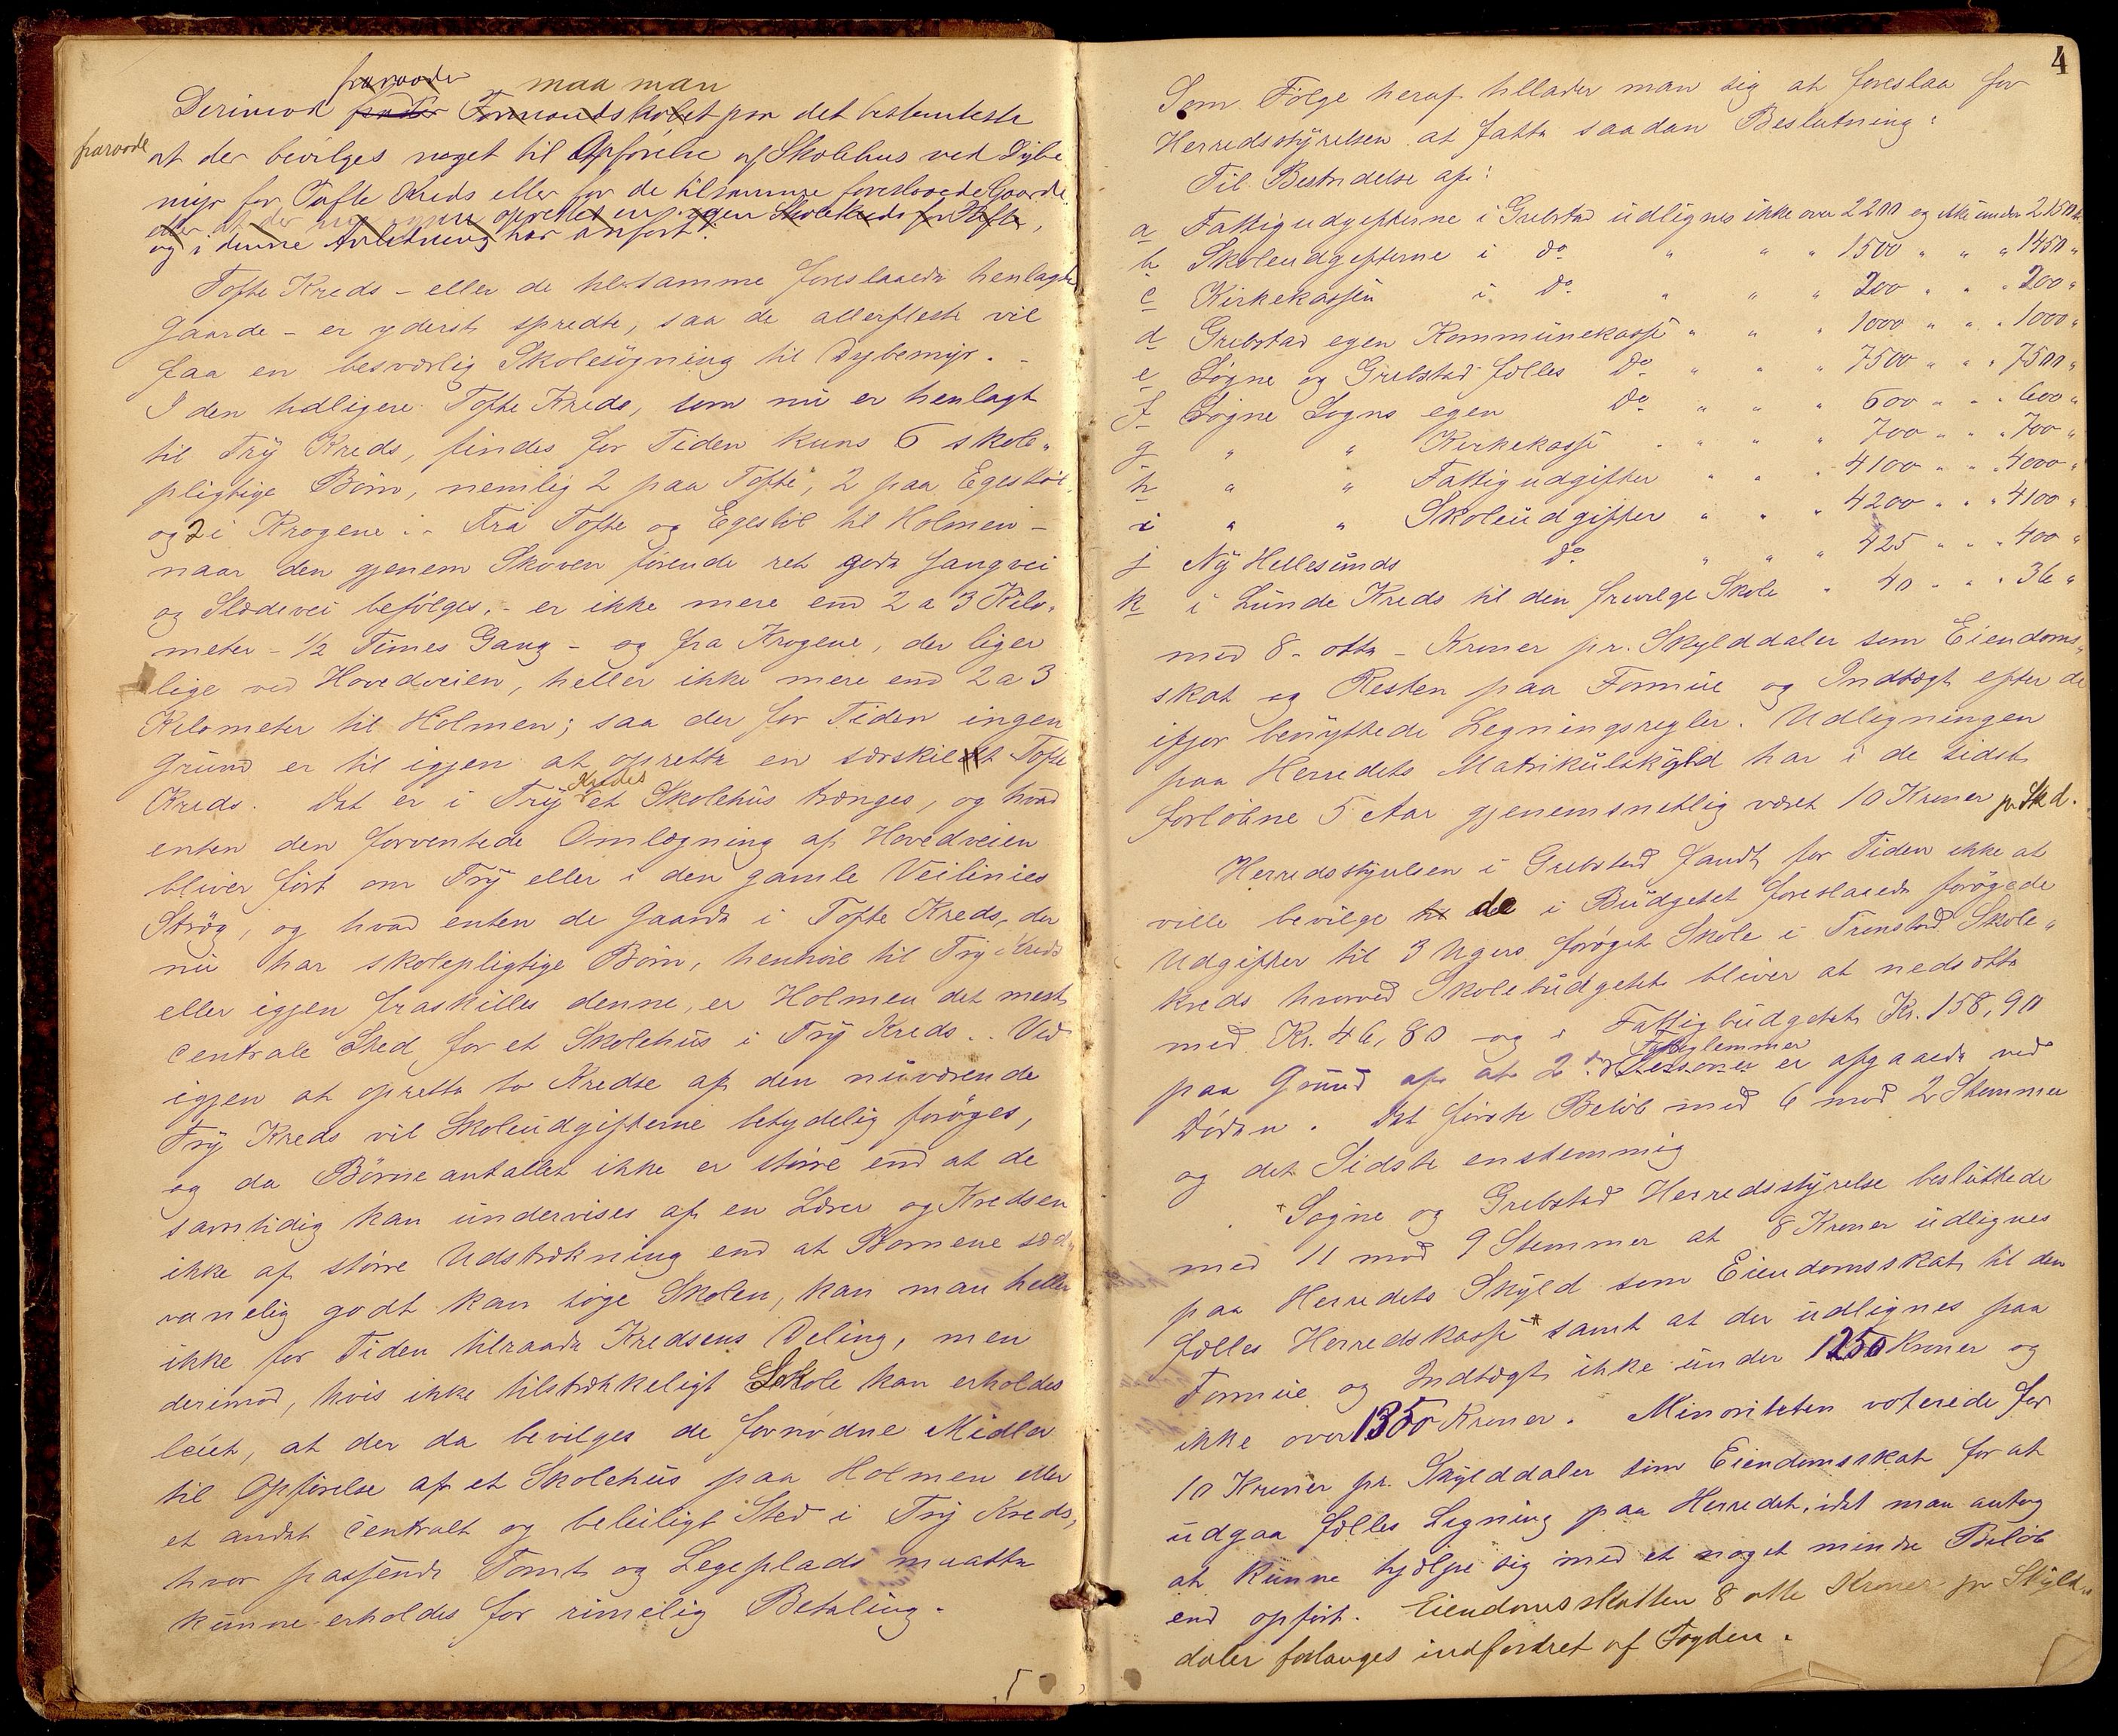 fraraader maa man
Derimod fraader Formandskabet paa det bestemteste
fraraade at der bevilges noget til Opførelse af Skolehus ved Dybe
myr for Tofte Kreds eller for de tilsamme foreslaaede Gaarde
eller at der nu igjen oprettes en egen Skolekreds for Tofte,
og i denne Anledning har anført.
Tofte Kreds – eller de tilsamme foreslaaede henlagte
Gaarde – er yderst spredte, saa de allerfleste vil
faa en besværlig Skolesøgning til Dybemyr. –
I den tidligere Tofte Kreds, som nu er henlagt
til Try Kreds, findes for Tiden kuns 6 skole„
pligtige Børn, nemlig 2 paa Tofte, 2 paa Egestøl,
og 2 i Krogene. – Fra Tofte og Egestøl til Holmen –
naar den gjenem Skoven førende ret gode Gangvei
og Slædevei befølges, – er ikke mere end 2 a 3 Kilo„
meter – ½ Times Gang – og fra Krogene, der liger
lige ved Hovedveien, heller ikke mere end 2 a 3
Kilometer til Holmen; saa der for Tiden ingen
Grund er til igjen at oprette en særskilt Tofte
Kreds. Det er i Try Kreds et Skolehus trænges, og hvad
enten den forventede Omlægning af Hovedveien
bliver ført om Try eller i den gamle Veilinies
Strøg, og hvad enten de Gaarde i Tofte Kreds, der
nu har skolepligtige Børn, henhøre til Try Kreds
eller igjen fraskilles denne, er Holmen det mest
centrale Sted for et Skolehus i Try Kreds. . Ved
igjen at oprette to Kredse af den nuværende
Try Kreds vil Skoleudgifterne betydelig forøges,
og da Børneantallet ikke er større end at de
samtidig kan undervises af en Lærer og Kredsen
ikke af større Udstrækning end at Børnene sæd„
vanelig godt kan søge Skolen, kan man heller
ikke for Tiden tilraade Kredsens Deling, men
derimod, hvis ikke tilstrækkeligt Skole kan erholdes
leiet, at der da bevilges de fornødne Midler
til Opførelse af et Skolehus paa Holmen eller
et andet centralt og beleiligt Sted i Try Kreds,
hvor passende Tomt og Legeplads maatte
kunne erholdes for rimelig Betaling.
4
Som Følge heraf tillader man sig at foreslaa for
Herredsstyrelsen at fatte saadan Beslutning:
Til Bestridelse af:
a Fattigudgifterne i Grebstad udlignes ikke over 2200 og ikke under 2150 „
b Skoleudgifterne i do „ „ „ 1500 „ „ „ 1450 „
c Kirkekassen i do „ „ „ 200 „ „ „ 200 „
d Grebstad egen Kommunekasse „ „ „ 1000 „ „ „ 1000 „
e Søgne og Grebstad fælles do „ „ „ 7500 „ „ „ 7500 „
f Søgne Sogns egen do „ „ „ 600 „ „ „ 600 „
g „ „ Kirkekasse „ „ „ 700 „ „ „ 700 „
h „ „ Fattigudgifter „ „ „ 4100 „ „ „ 4000 „
i „ „ Skoleudgifter „ „ „ 4200 „ „ „ 4100 „
j Ny Hellesunds do „ „ „ 425 „ „ „ 400 „
k i Lunde Kreds til den frivilge Skole „ 40 „ „ „ 36 „
med 8 – otte – Kroner pr. Skylddaler som Eiendoms„
skat og Resten paa Formue og Indtægt efter de
ifjor benyttede Legningsregler. Udligningen
paa Herredets Matrikulskyld har i de sidste
forløbne 5 Aar gjenemsnetlig været 10 Kroner pr Skd.
Herredsstyrelsen i Grebstad fandt for Tiden ikke at
ville bevilge til de i Budgetet foreslaaede forøgede
Udgifter til 3 Ugers forøget Skole i Trenstad Skole„
kreds hvorved Skolebudgettet bliver at nedsætte
med Kr. 46,80 og i Fattigbudgetet Kr. 158,90
paa Grund af at 2de Personer Fattiglemmer er afgaaede ved
Døden. Det første Beløb med 6 mod 2 Stemmer
og det Sidste enstemmig
Søgne og Grebstad Herredsstyrelse besluttede
med 11 mod 9 Stemmer at 8 Kroner udlignes
paa Herredets Skyld som Eiendomsskat til den
fælles Herredskasse samt at der udlignes paa
Formue og Indtægt ikke under 1250 Kroner og
ikke over 1350 Kroner. Minoriteten voterede for
10 Kroner pr. Skylddaler som Eiendomsskat for at
udgaa fælles Ligning paa Herredet, idet man antog
at kunne hjælpe sig med et noget mindre Beløb
end opført. Eiendomsskatten 8 otte Kroner pr Skyld„
daler forlanges indfordret af Fogden.